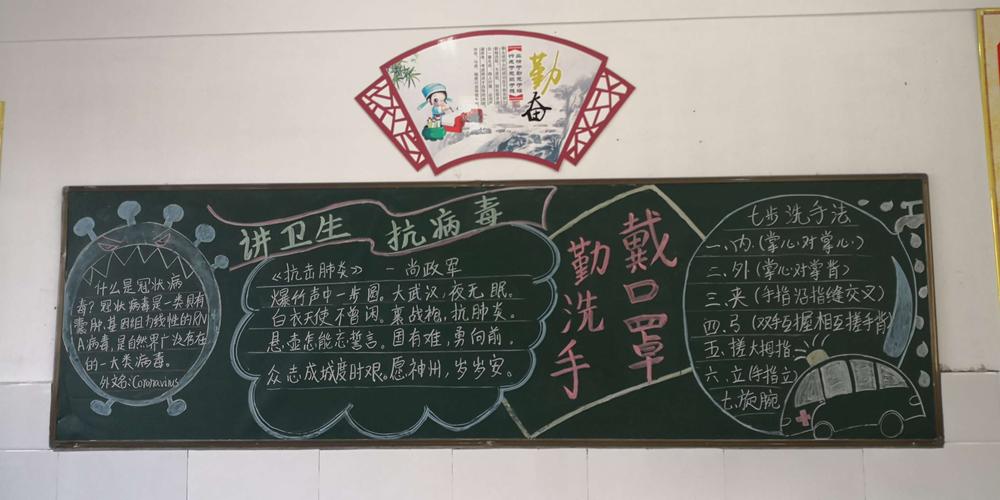 勤
奋
讲卫生 抗病毒
什么是冠状病
毒?冠状病毒是一类具有
囊肿、基因组为线性的RN
A病毒,是自然界广泛存在
的一大类病毒。
外文名:Coronavirus
《抗击肺炎》 —尚政军
爆竹声中一步圆。大武汉,夜无眠。
白衣天使不曾闲。裹战袍,抗肺炎。
悬壶怎能忘誓言。国有难,勇向前。
众志成城度时艰。愿神州,岁岁安。
戴口罩
勤洗手
七步洗手法
一、内(掌心对掌心)
二、外(掌心对掌背)
三、夹(手指沿指缝交叉)
四、弓(双手互握相互搓手背)
五、搓大拇指
六、立(手指立)
七、旋腕